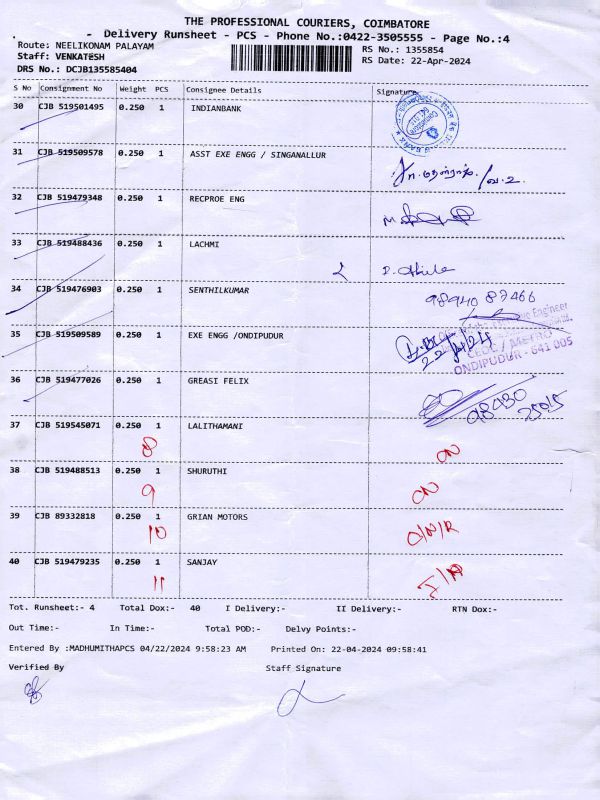 THE PROFESSIONAL COURIERS, COIMBATORE
- Delivery Runsheet - PCS - Phone No.:0422-3505555 - Page No.:4
Route: NEELIKONAM PALAYAM
RS No.: 1355854
Staff: VENKATESH
RS Date: 22-Apr-2024
DRS No.: DCJB135585404
S No Consignment No Weight PCS Consignee Details Signature
30 CJB 519501495 0.250 1 INDIANBANK
31 CJB 519509578 0.250 1 ASST EXE ENGG / SINGANALLUR
32 CJB 519479348 0.250 1 RECPROE ENG
33 CJB 519488436 0.250 1 LACHMI
34 CJB 519476903 0.250 1 SENTHILKUMAR
98940 87466
35 CJB 519509589 0.250 1 EXE ENGG /ONDIPUDUR
22/4/24
Executive Engineer
ONDIPUDUR - 641 005
36 CJB 519477026 0.250 1 GREASI FELIX
98430
25015
37 CJB 519545071 0.250 1 LALITHAMANI
8 ON
38 CJB 519488513 0.250 1 SHURUTHI
9 ON
39 CJB 89332818 0.250 1 GRIAN MOTORS
10 O/N/R
40 CJB 519479235 0.250 1 SANJAY
11
Tot. Runsheet:- 4 Total Dox:- 40 I Delivery:- II Delivery:- RTN Dox:-
Out Time:- In Time:- Total POD:- Delvy Points:-
Entered By :MADHUMITHAPCS 04/22/2024 9:58:23 AM Printed On: 22-04-2024 09:58:41
Verified By Staff Signature